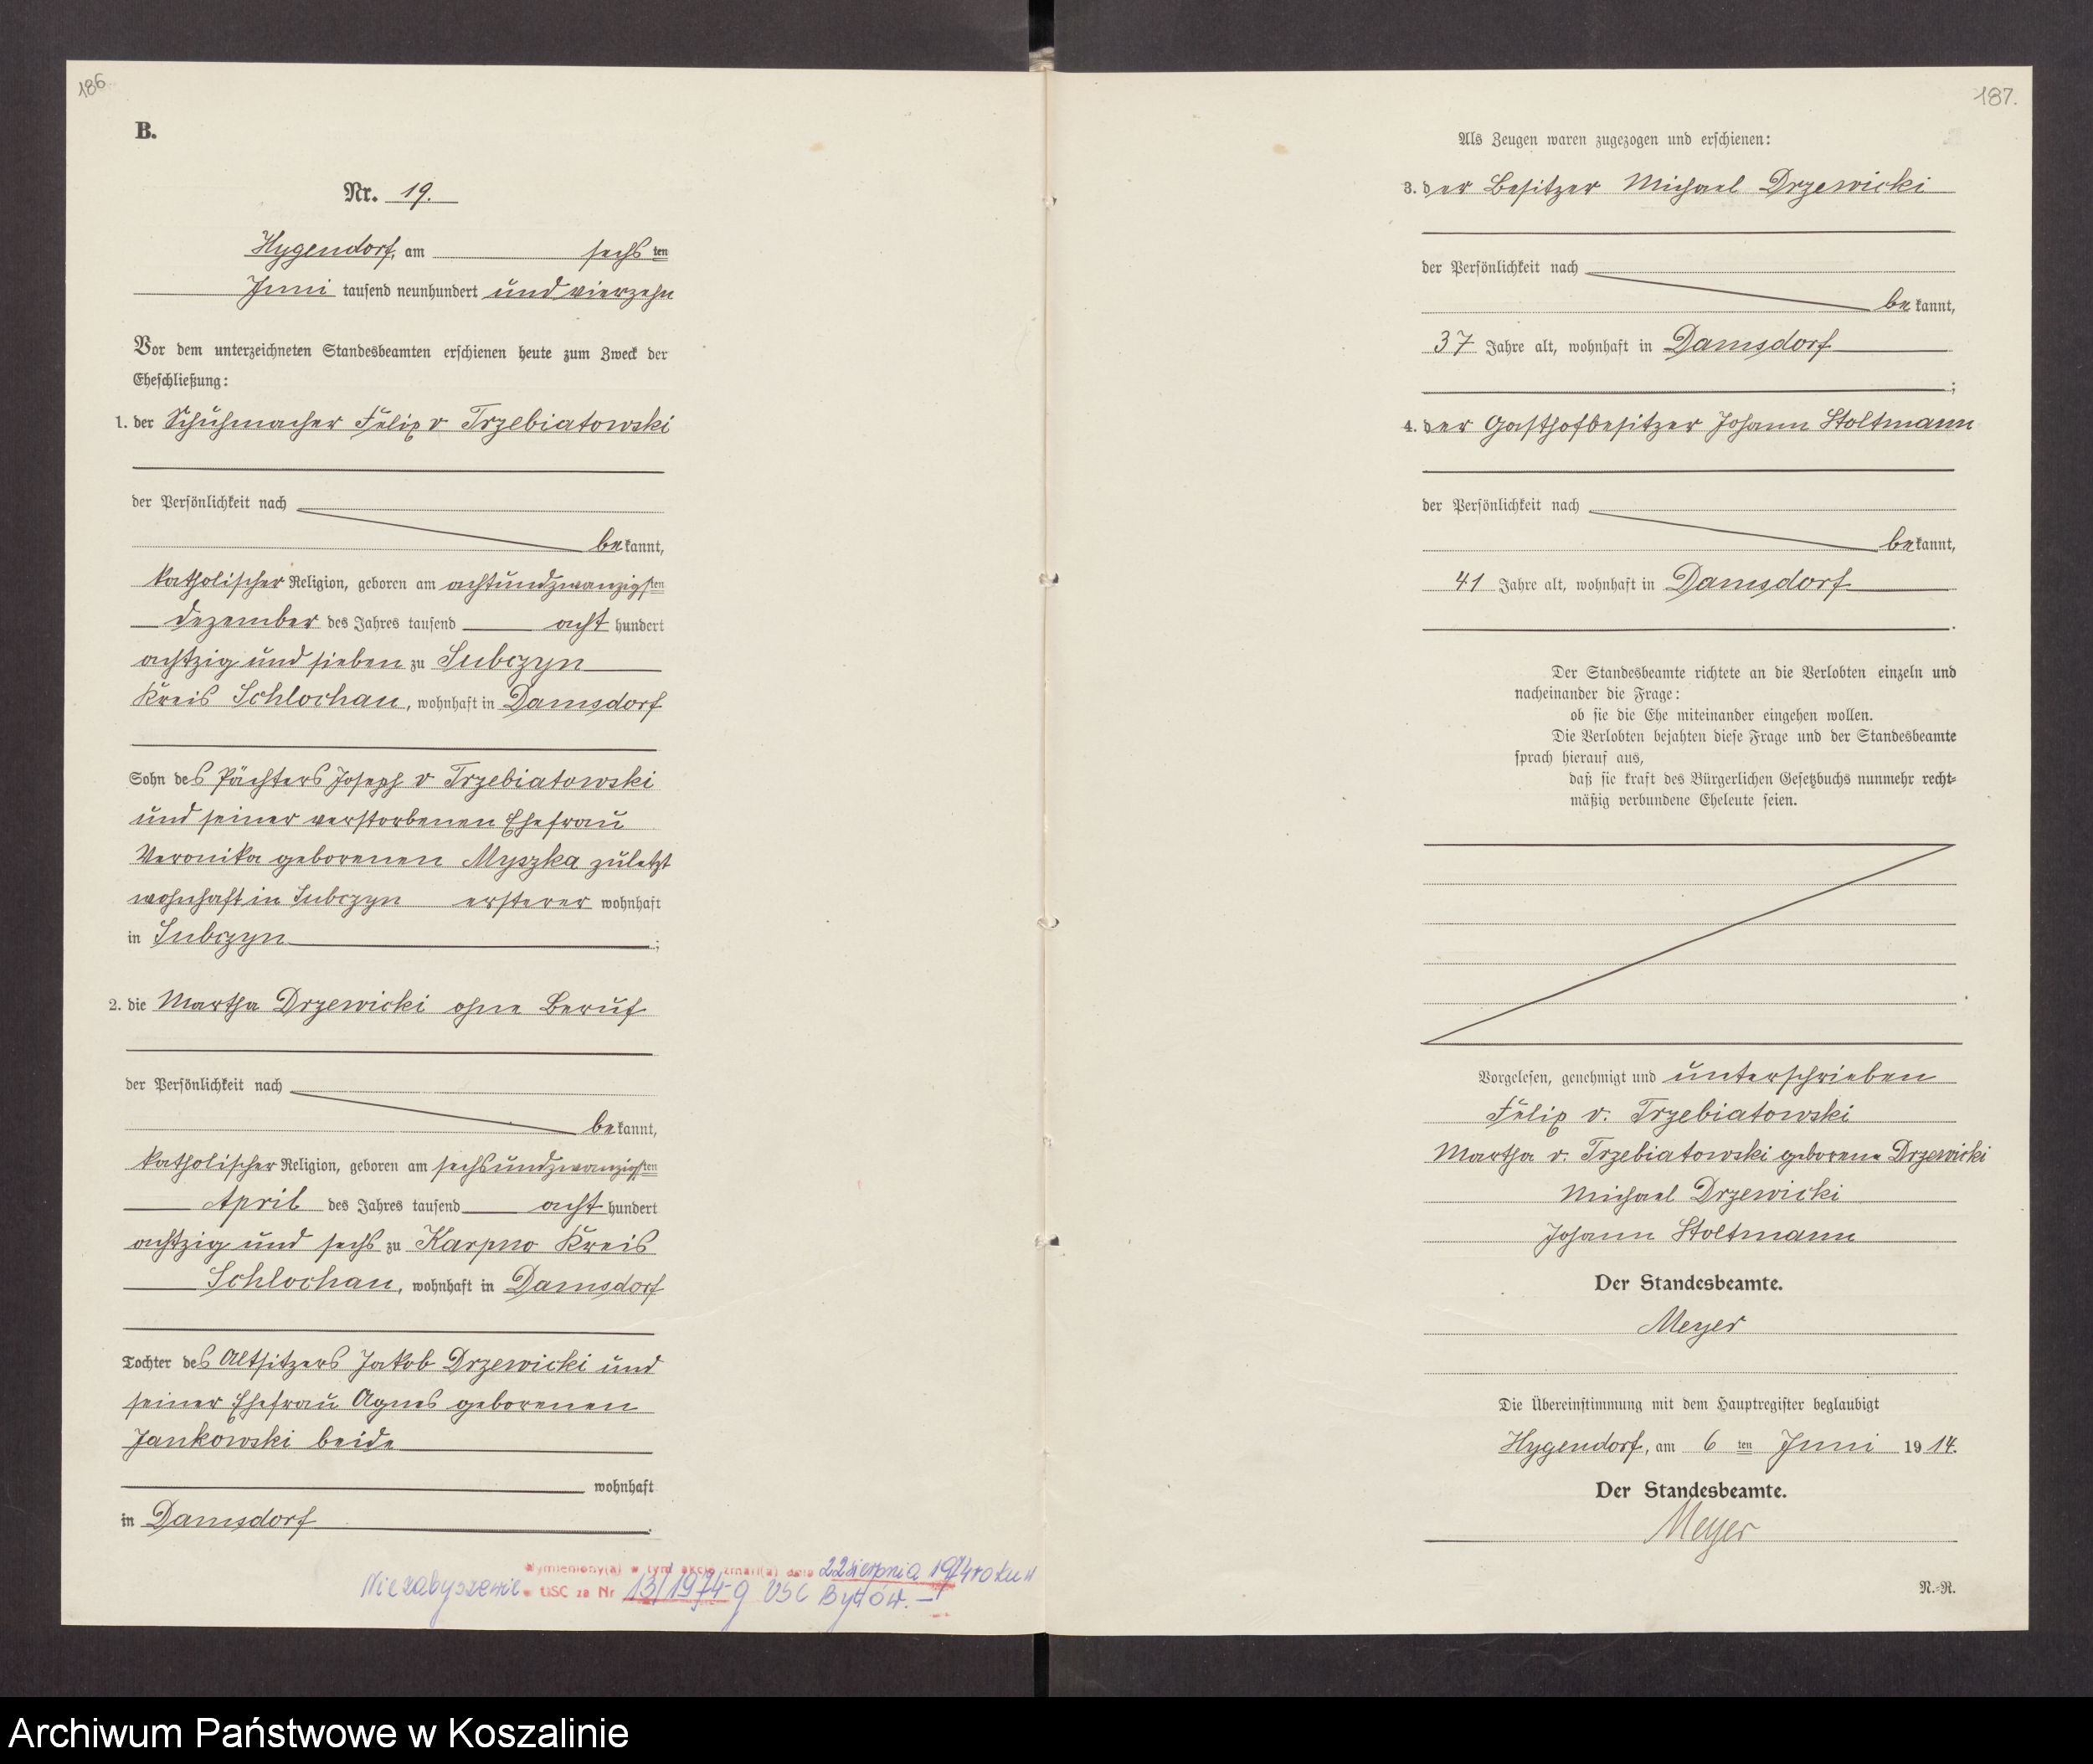 186
B.
Nr. 19.
Hygendorf, am sechsten
Juni tausend neunhundert und vierzehn
Vor dem unterzeichneten Standesbeamten erschienen heute zum Zweck der
Eheschließung:
1. der Schuhmacher Felix v Trzebiatowski
der Persönlichkeit nach
bekannt,
katholischer Religion, geboren am achtundzwanzigsten
Dezember des Jahres tausend acht hundert
achtzig und sieben zu Lubczyn
Kreis Schlochau, wohnhaft in Damsdorf
Sohn des Pächters Joseph v Trzebiatowski
und seiner verstorbenen Ehefrau
Veronika geborenen Myszka zuletzt
wohnhaft in Lubczyn ersterer wohnhaft
in Lubczyn ;
2. die Martha Drzewicki ohne Beruf
der Persönlichkeit nach
bekannt,
katholischer Religion, geboren am sechsundzwanzigsten
April des Jahres tausend acht hundert
achtzig und sechs zu Karpno Kreis
Schlochau, wohnhaft in Damsdorf
Tochter des Altsitzers Jakob Drzewicki und
seiner Ehefrau Agnes geborenen
Jankowski beide
wohnhaft
in Damsdorf .
Wymieniony(a) w tym akcie zmarł(a) dnia 22 sierpnia 1974 roku w
Niezabyszewie USC za Nr 13/1974 USC Bytów.
187.
Als Zeugen waren zugezogen und erschienen:
3. der Besitzer Michael Drzewicki
der Persönlichkeit nach
bekannt,
37 Jahre alt, wohnhaft in Damsdorf
;
4. der Gasthofbesitzer Johann Stoltmann
der Persönlichkeit nach
bekannt,
41 Jahre alt, wohnhaft in Damsdorf
.
Der Standesbeamte richtete an die Verlobten einzeln und
nacheinander die Frage:
ob sie die Ehe miteinander eingehen wollen.
Die Verlobten bejahten diese Frage und der Standesbeamte
sprach hierauf aus,
daß sie kraft des Bürgerlichen Gesetzbuchs nunmehr recht-
mäßig verbundene Eheleute seien.
Vorgelesen, genehmigt und unterschrieben
Felix v. Trzebiatowski
Martha v. Trzebiatowski geborene Drzewicki
Michael Drzewicki
Johann Stoltmann
Der Standesbeamte.
Meyer
Die Übereinstimmung mit dem Hauptregister beglaubigt
Hygendorf, am 6 ten Juni 1914.
Der Standesbeamte.
Meyer
N.-R.
Archiwum Państwowe w Koszalinie